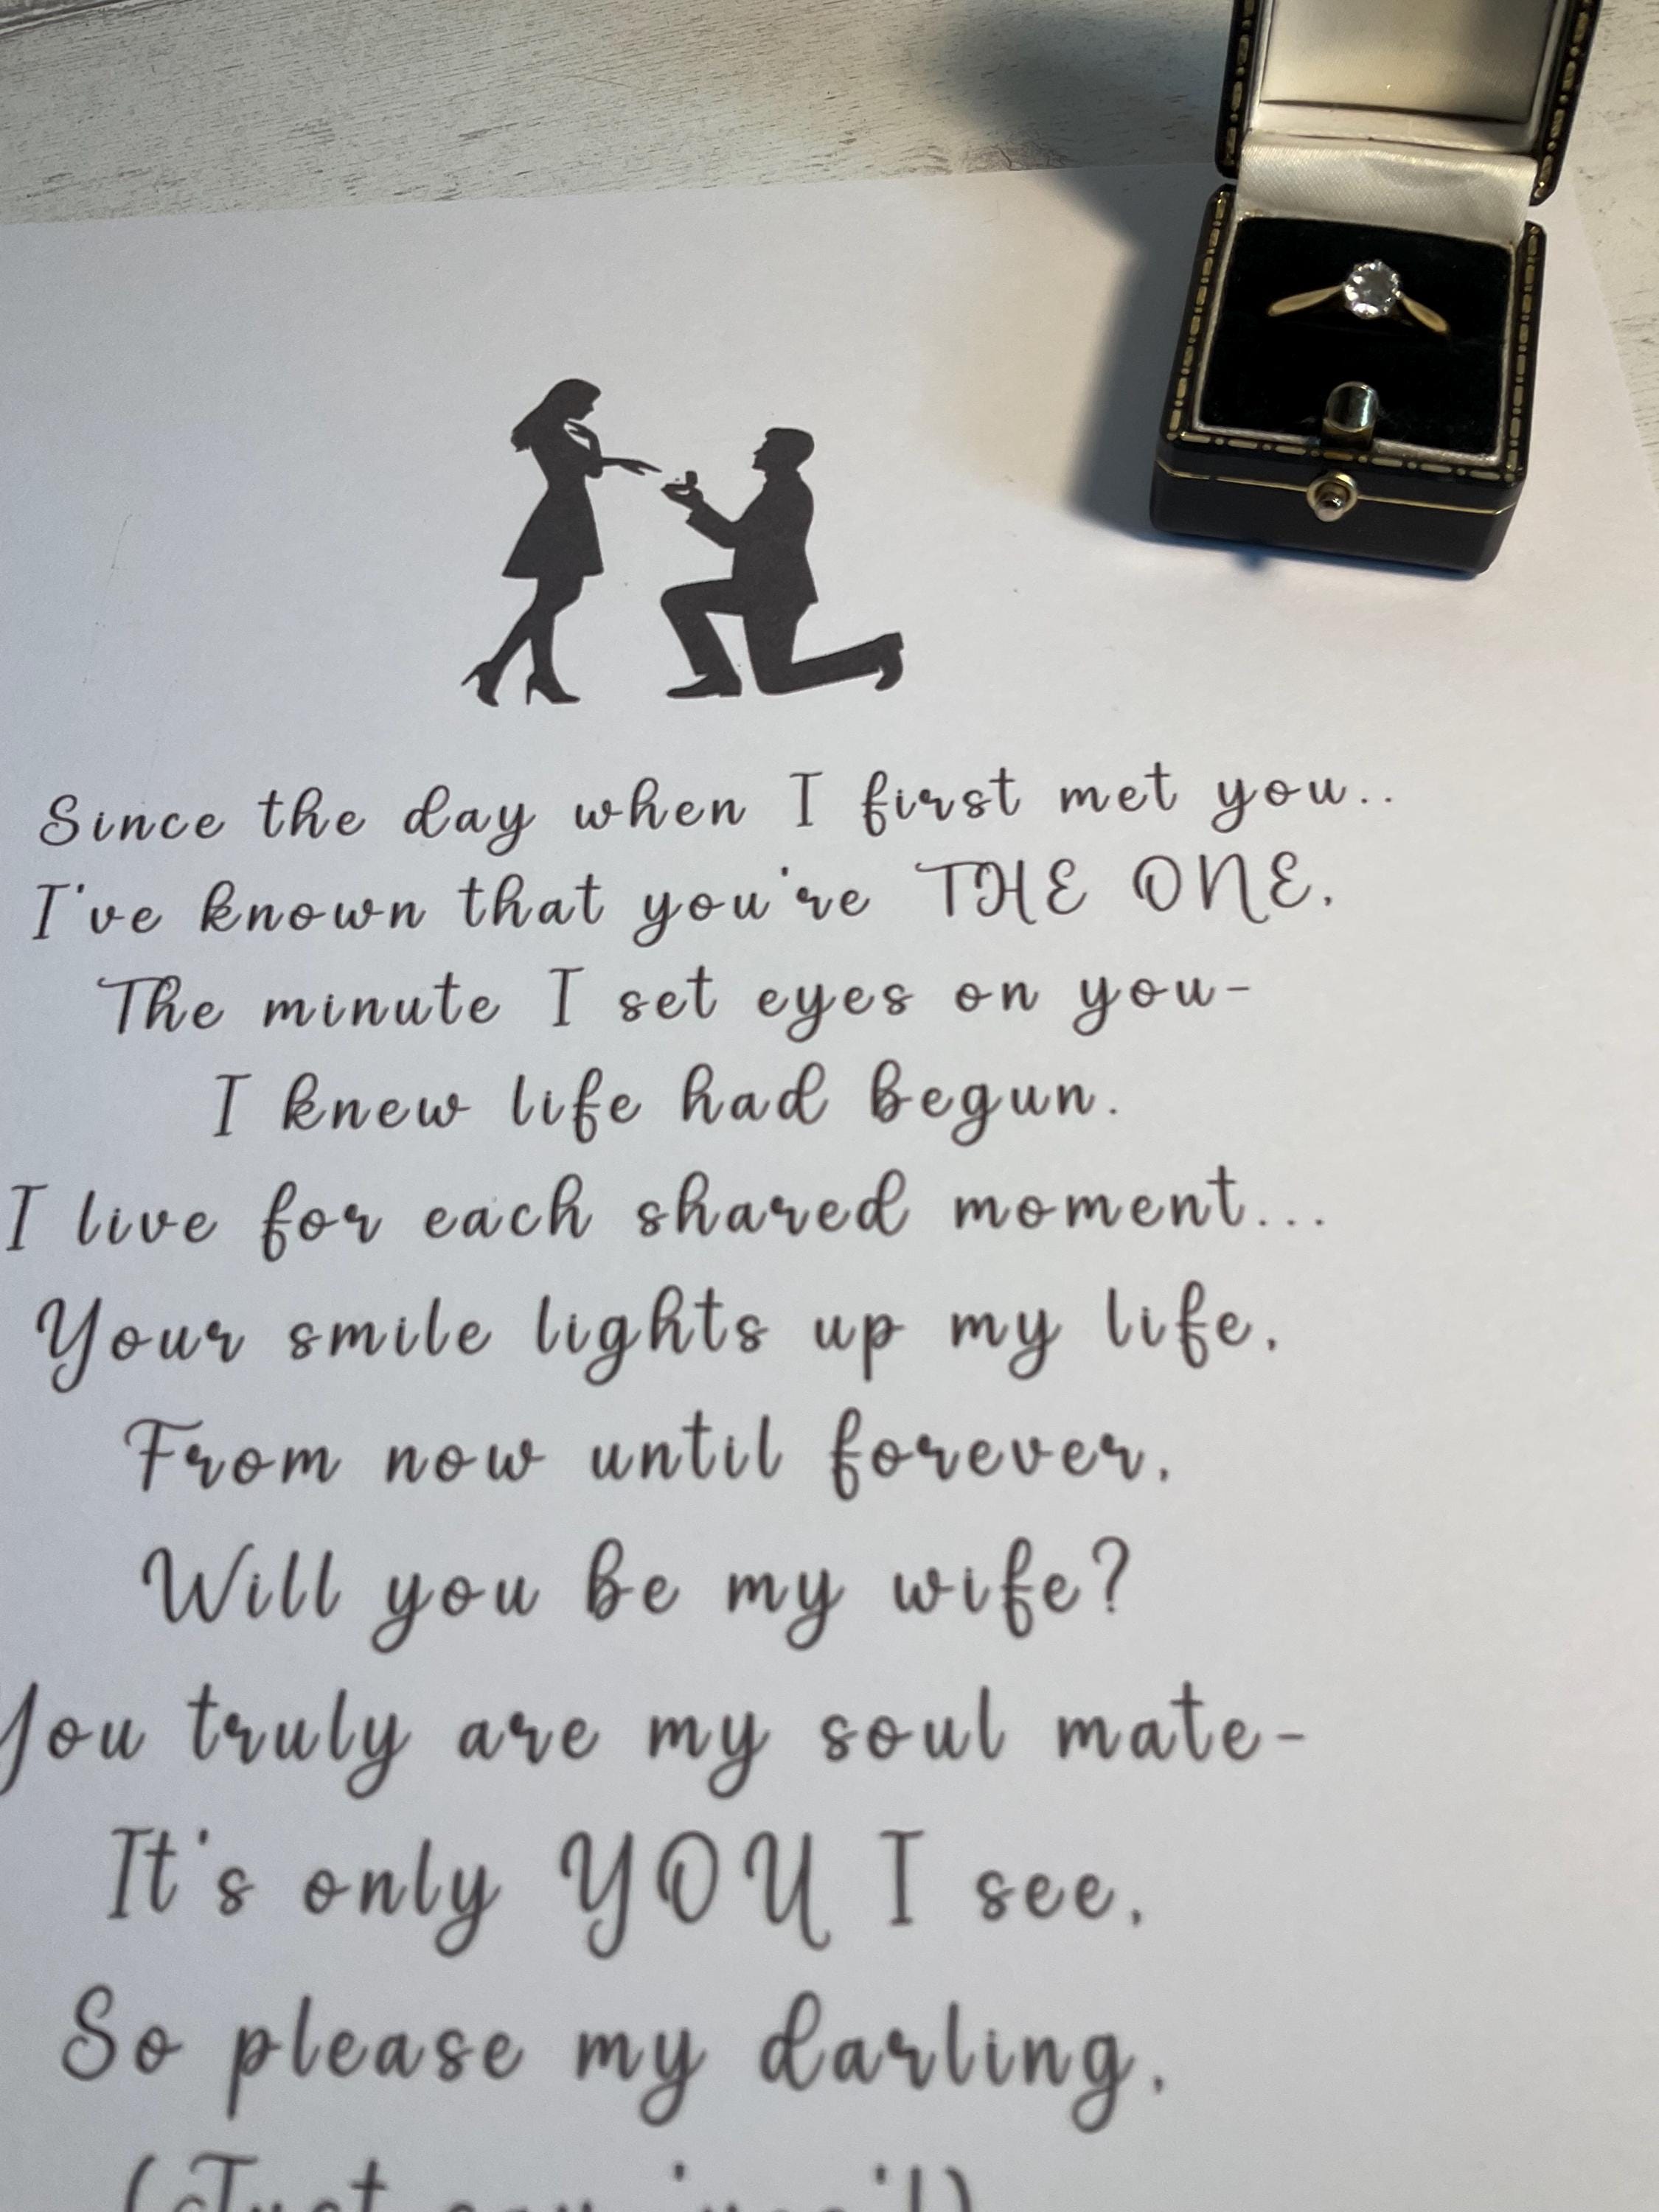 Since the day when I first met you..
I've known that you're THE ONE.
The minute I set eyes on you-
I knew life had begun.
I live for each shared moment...
Your smile lights up my life.
From now until forever,
Will you be my wife?
You truly are my soul mate-
It's only YOU I see,
So please my darling,
(Just say 'yes'!)